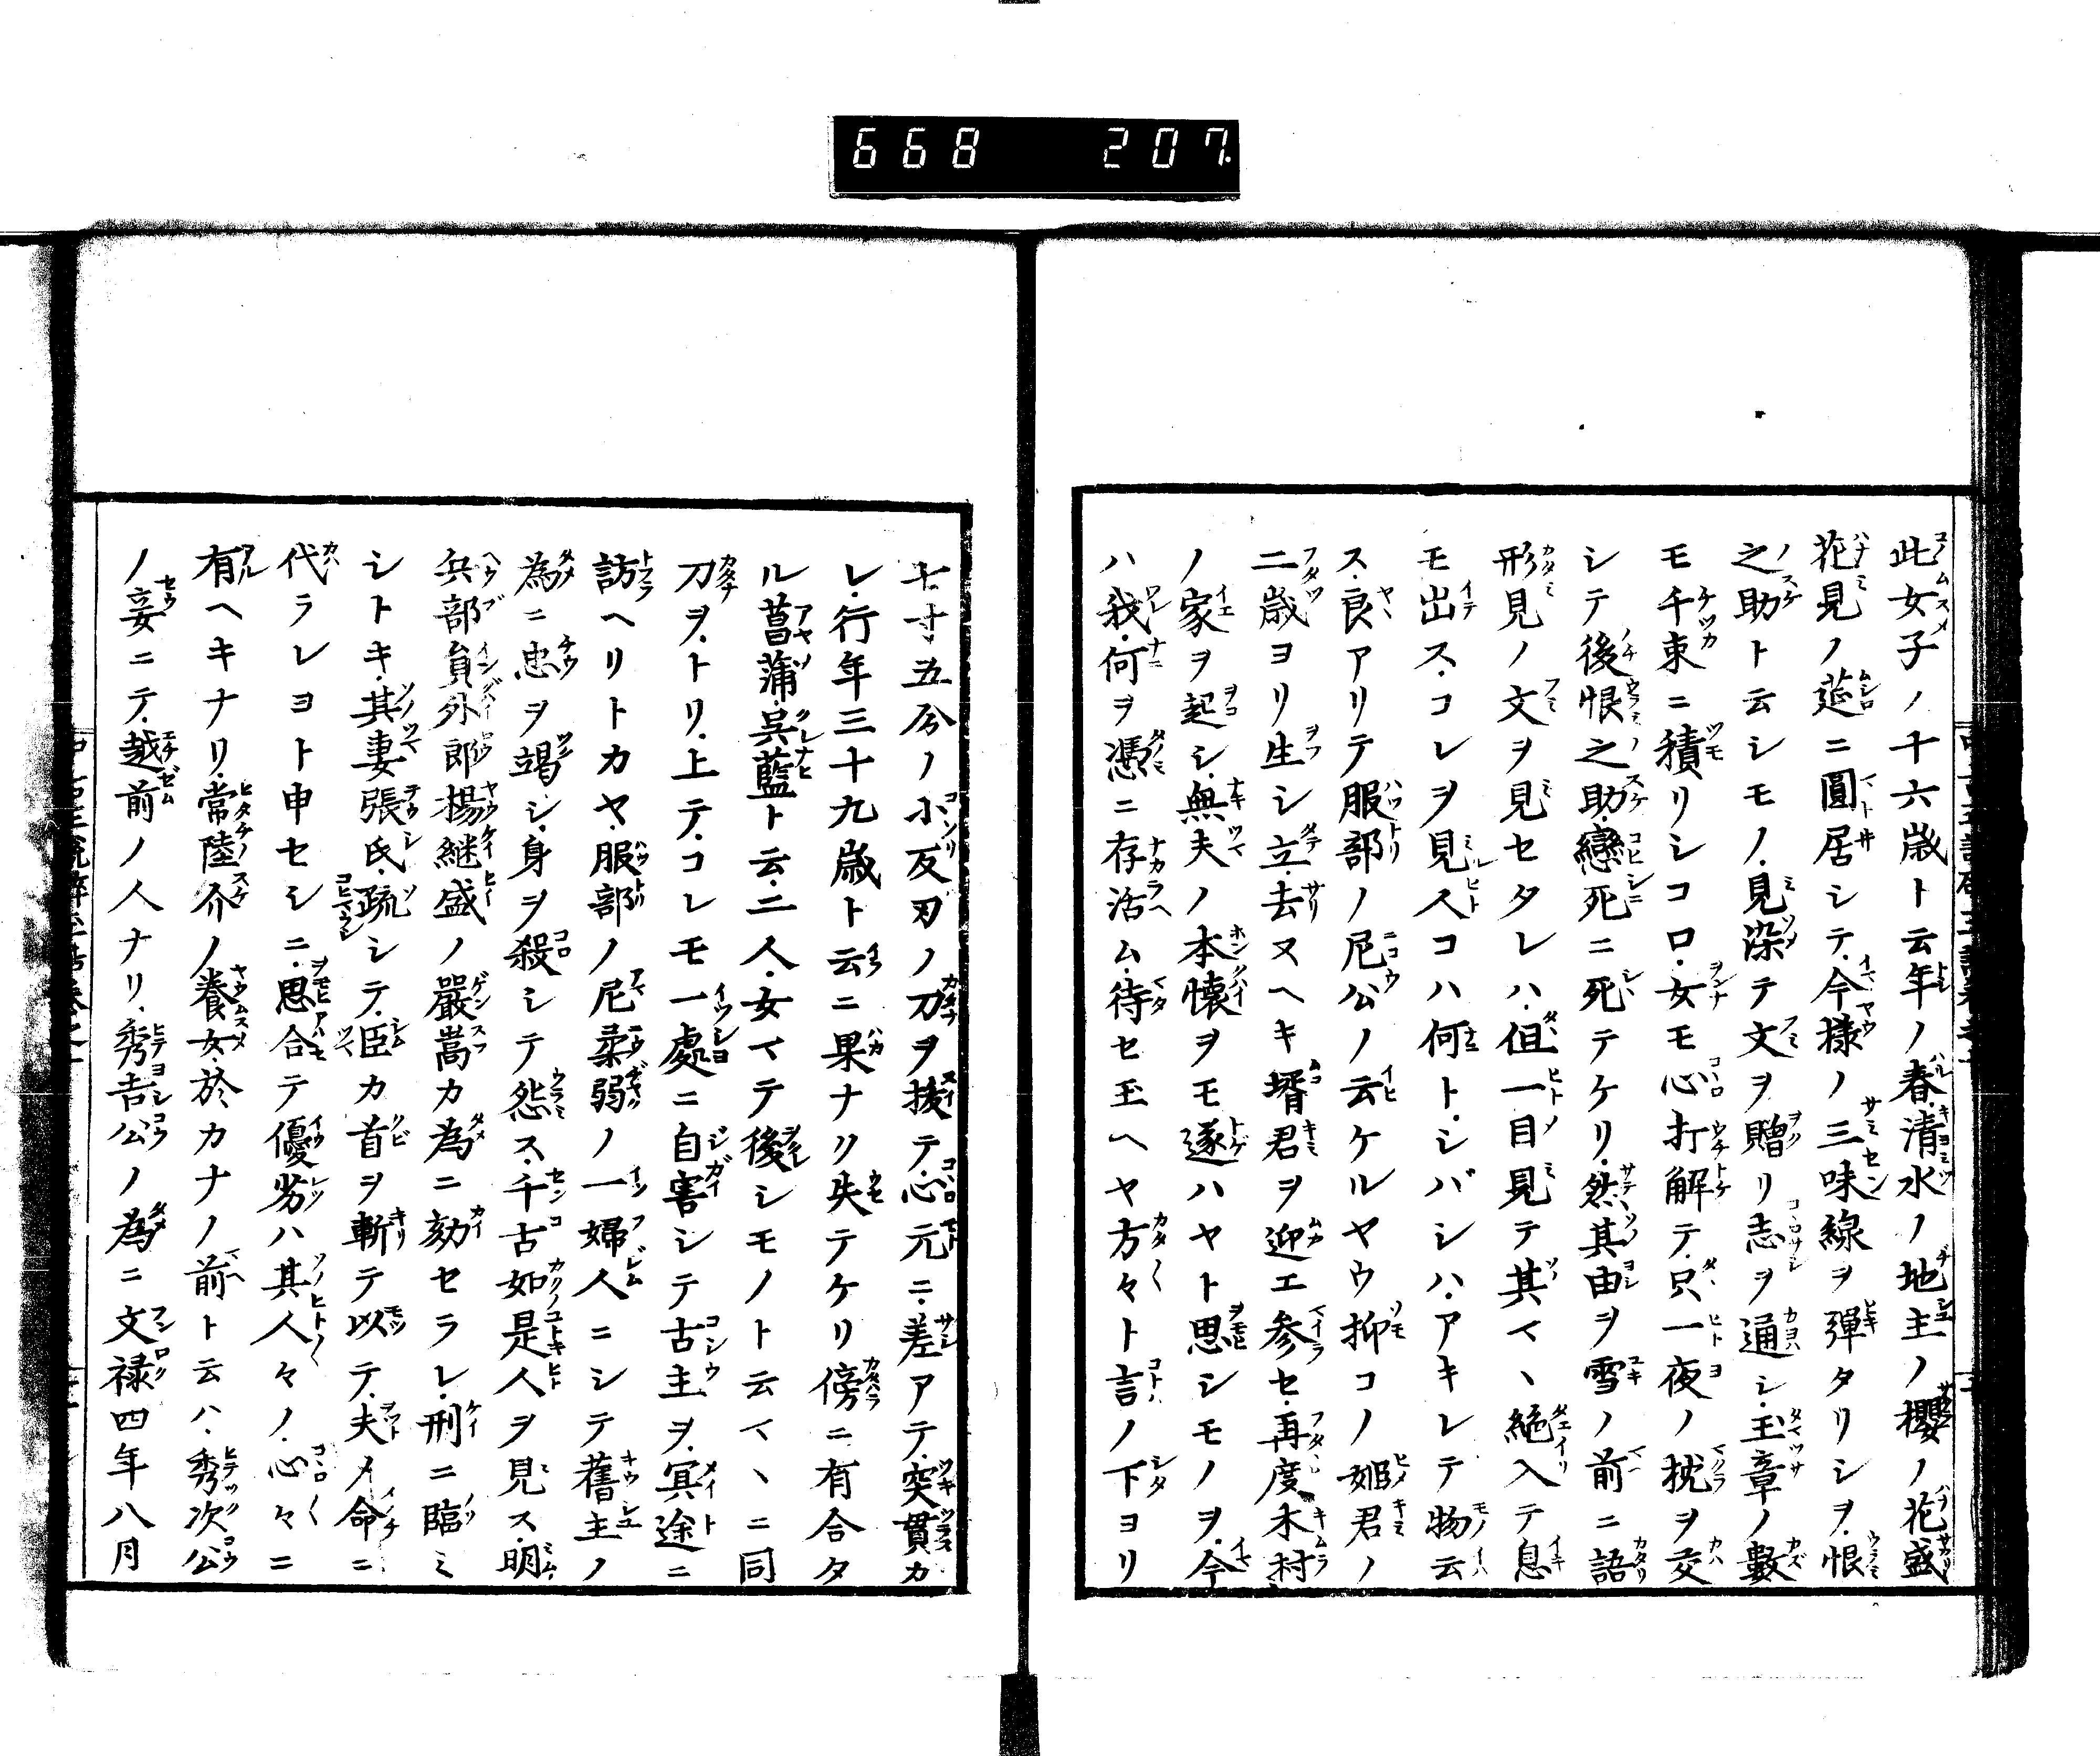 668 207
此女子ノ十六歳ト云年ノ春清水ノ地主ノ櫻ノ花盛
花見ノ莚ニ圓居シテ今様ノ三味線ヲ彈タリシヲ恨
之助ト云シモノ見染テ文ヲ贈リ志ヲ通シ玉章ノ數
モ千束ニ積リシコロ女モ心打解テ只一夜ノ枕ヲ交
シテ後恨之助戀死ニ死テケリ然其由ヲ雪ノ前ニ語
形見ノ文ヲ見セタレハ但一目見テ其マヽ絶入テ息
モ出ス コレヲ見人コハ何トシバシハアキレテ物云
ス良アリテ服部ノ尼公ノ云ケルヤウ抑コノ姫君ノ
二歳ヨリ生シ立去ヌヘキ壻君ヲ迎エ参セ再度木村
ノ家ヲ起シ無夫ノ本懐ヲモ遂ハヤト思シモノヲ今
ハ我何ヲ憑ニ存活ム待セ玉ヘヤ方々ト言ノ下ヨリ
七寸五分ノ小反刃ノ刀ヲ抜テ心元ニ差アテ突貫カ
レ行年三十九歳ト云ニ果ナリ失テケリ傍ニ有合タ
ル菖蒲呉藍ト云二人女マテ後シモノト云マヽニ同
刀ヲトリ上テコレモ一處ニ自害シテ古主ヲ冥途ニ
訪ヘリトカヤ服部ノ尼柔弱ノ一婦人ニシテ舊主ノ
為ニ忠ヲ竭シ身ヲ殺シテ怨ス千古如是人ヲ見ス明
兵部員外郎楊継盛ノ嚴嵩カ為ニ劾セラレ刑ニ臨ミ
シトキ其妻張氏疏シテ臣カ首ヲ斬テ以テ夫ノ命ニ
代ラレヨト申セシニ思合テ優劣ハ其人々ノ心々ニ
有ヘキナリ常陸介ノ養女於カナノ前ト云ハ秀次公
ノ妾ニテ越前ノ人ナリ秀吉公ノ為ニ文禄四年八月